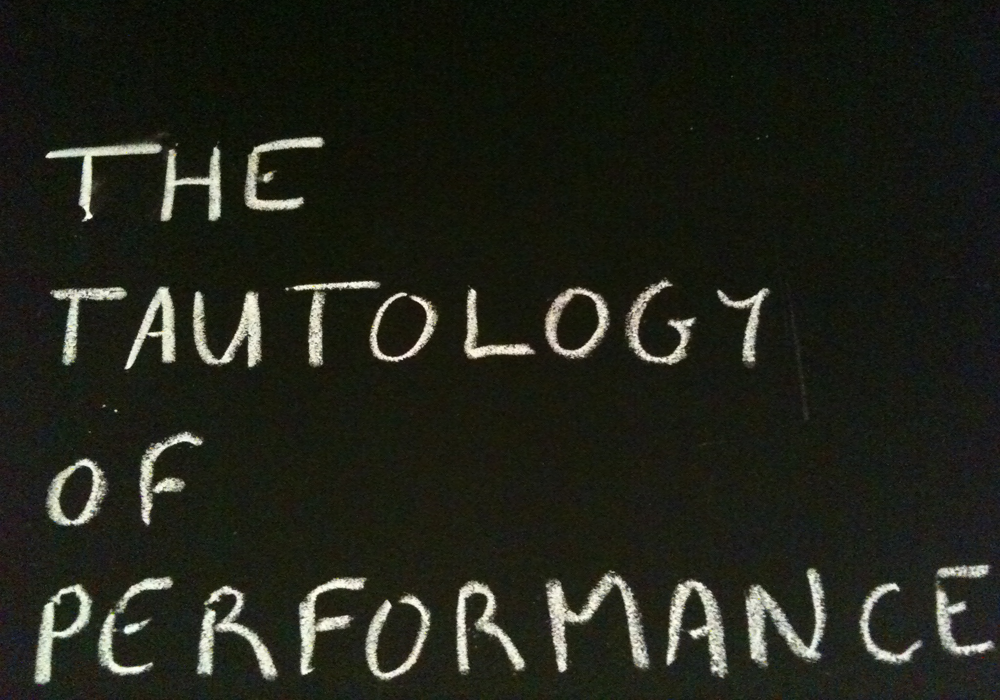 THE
TAUTOLOGY
OF
PERFORMANCE